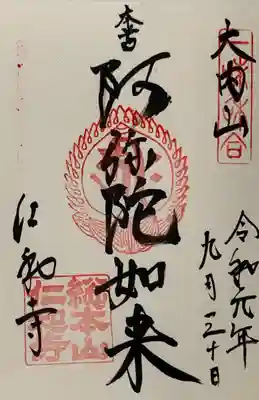 大内山
令和元年
九月二十日
本尊
阿弥陀如来
仁和寺
総本山
仁和寺